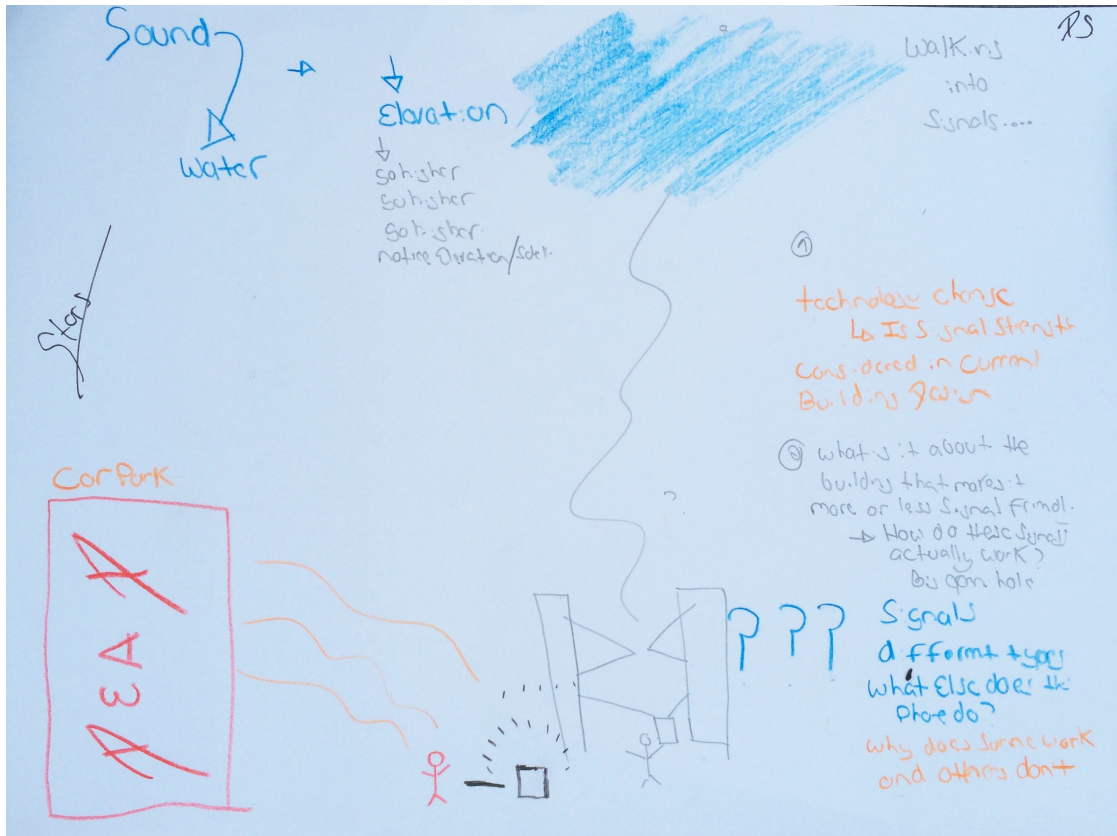 Sound
Water
Elavation
go higher
go higher
go higher
notice Elvation/
Walking
into
Signals....
Stars
①
technology change
↳ Is Signal Strength
Considered in Current
Building Design
② what is it about the
building that makes it
more or less Signal Friendl.
→ How do these Signals
actually work?
Big open hole
? ? ?
Signals
different types
what Else does the
Phone do?
why does some work
and others dont
Car Park
DEAD